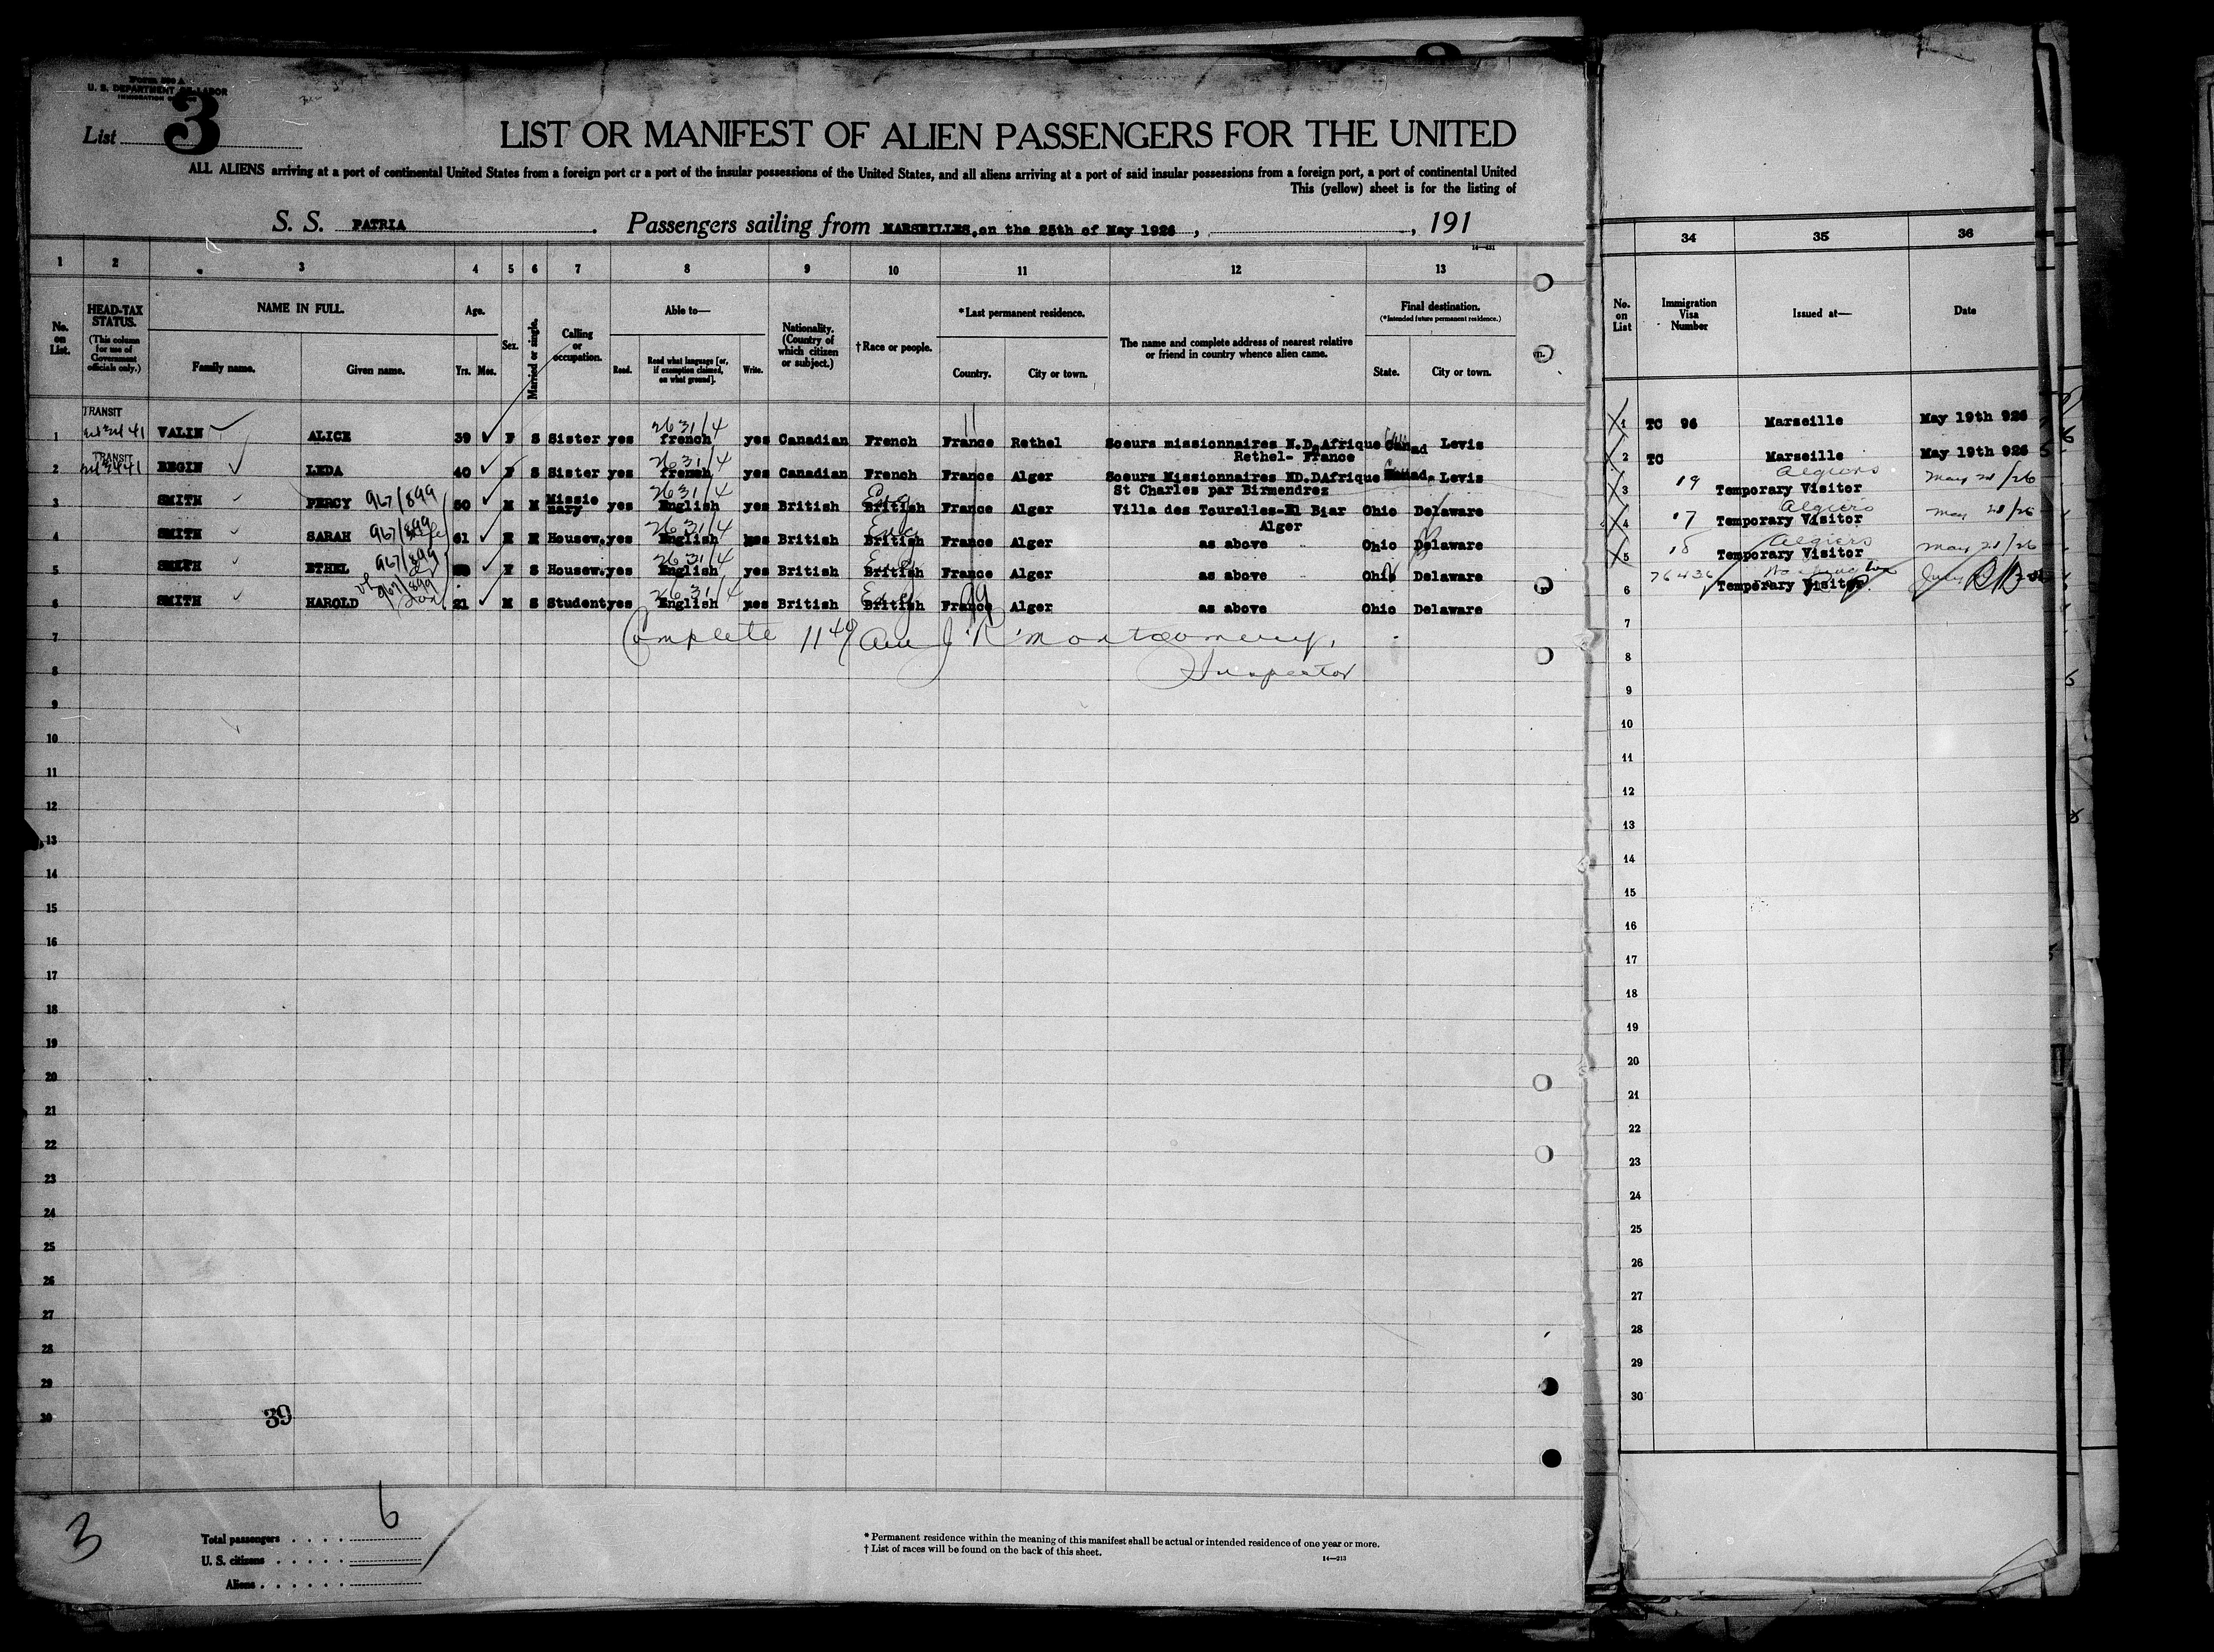 Form 500 A
U. S. DEPARTMENT OF LABOR
IMMIGRATION
List 3
LIST OR MANIFEST OF ALIEN PASSENGERS FOR THE UNITED
ALL ALIENS arriving at a port of continental United States from a foreign port or a port of the insular possessions of the United States, and all aliens arriving at a port of said insular possessions from a foreign port, a port of continental United
This (yellow) sheet is for the listing of
S. S. PATRIA . Passengers sailing from MARSEILLES, on the 25th of May 1926 , , 191
14—231
1 2 3 4 5 6 7 8 9 10 11 12 13 34 35 36
No. on List. HEAD-TAX STATUS. (This column for use of Government officials only.) NAME IN FULL. Family name. Given name. Age. Yrs. Mos. Sex. Married or single. Calling or occupation. Able to— Read. Read what language [or, if exemption claimed, on what ground]. Write. Nationality. (Country of which citizen or subject.) † Race or people. *Last permanent residence. Country. City or town. The name and complete address of nearest relative or friend in country whence alien came. Final destination. (*Intended future permanent residence.) State. City or town.
No. on List Immigration Visa Number Issued at— Date
TRANSIT
1 VALIN ALICE 39 F S Sister yes french yes Canadian French France Rethel Soeurs missionnaires N.D.Afrique Rethel- France Canad Levis
1 TC 96 Marseille May 19th 926
TRANSIT
2 BEGIN LEDA 40 F S Sister yes french yes Canadian French France Alger Soeurs Missionnaires ND.DAfrique St Charles par Birmendrez Canada Levis
2 TC Marseille May 19th 926
3 SMITH PERCY 967/899 50 M M Missionary yes English yes British British Eng France Alger Villa des Tourelles-El Biar Alger Ohio Delaware
3 19 Algiers Temporary Visitor May 21/26
4 SMITH SARAH 967/899 wife 51 Housew. yes English yes British British Eng France Alger as above Ohio Delaware
4 17 Algiers Temporary Visitor May 21/26
5 SMITH ETHEL 967/899 F S Housew. yes English yes British British Eng France Alger as above Ohio Delaware
5 18 Algiers Temporary Visitor May 21/26
6 SMITH HAROLD 967/899 son 21 M S Student yes English yes British British Eng France Alger as above Ohio Delaware
6 76436 Washington Temporary Visitor.
Complete 11 40 am J R Montgomery,
Inspector
7
8
9
10
11
12
13
14
15
16
17
18
19
20
21
22
23
24
25
26
27
28
29
30
39
3
6
Total passengers
U. S. citizens
Aliens
* Permanent residence within the meaning of this manifest shall be actual or intended residence of one year or more.
† List of races will be found on the back of this sheet.
14—213